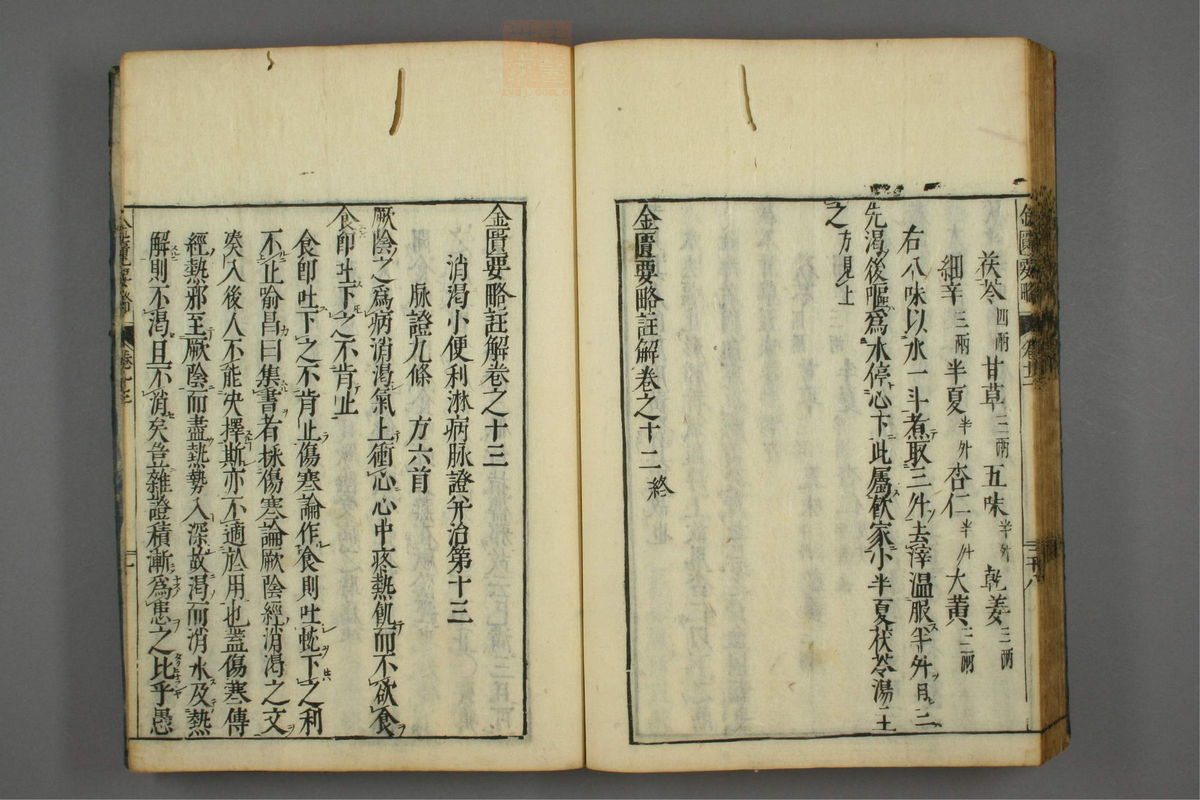 茯苓四兩 甘草三兩 五味半升 乾姜三兩
細辛三兩 半夏半升 杏仁半升 大黃三兩
右八味以水一斗煮取三升去滓溫服半升日三
先渴後嘔爲水停心下此屬飲家小半夏茯苓湯主
之方見上
金匱要略註解卷之十二終
金匱要略註解卷之十三
消渴小便利淋病脉證并治第十三
脉證九條 方六首
厥陰之爲病消渴氣上衝心心中疼熱飢而不欲食
食即吐下之不肯止
食即吐下之不肯止傷寒論作食則吐蚘下之利
不止喻昌曰集書者採傷寒論厥陰經消渴之文
矣入後人不能决擇斯亦不適於用也蓋傷寒傳
經熱邪至厥陰而盡熱勢入深故渴而消水及熱
解則不渴且不消矣豈雜證積漸爲患之比乎愚
金匱要略 卷十三